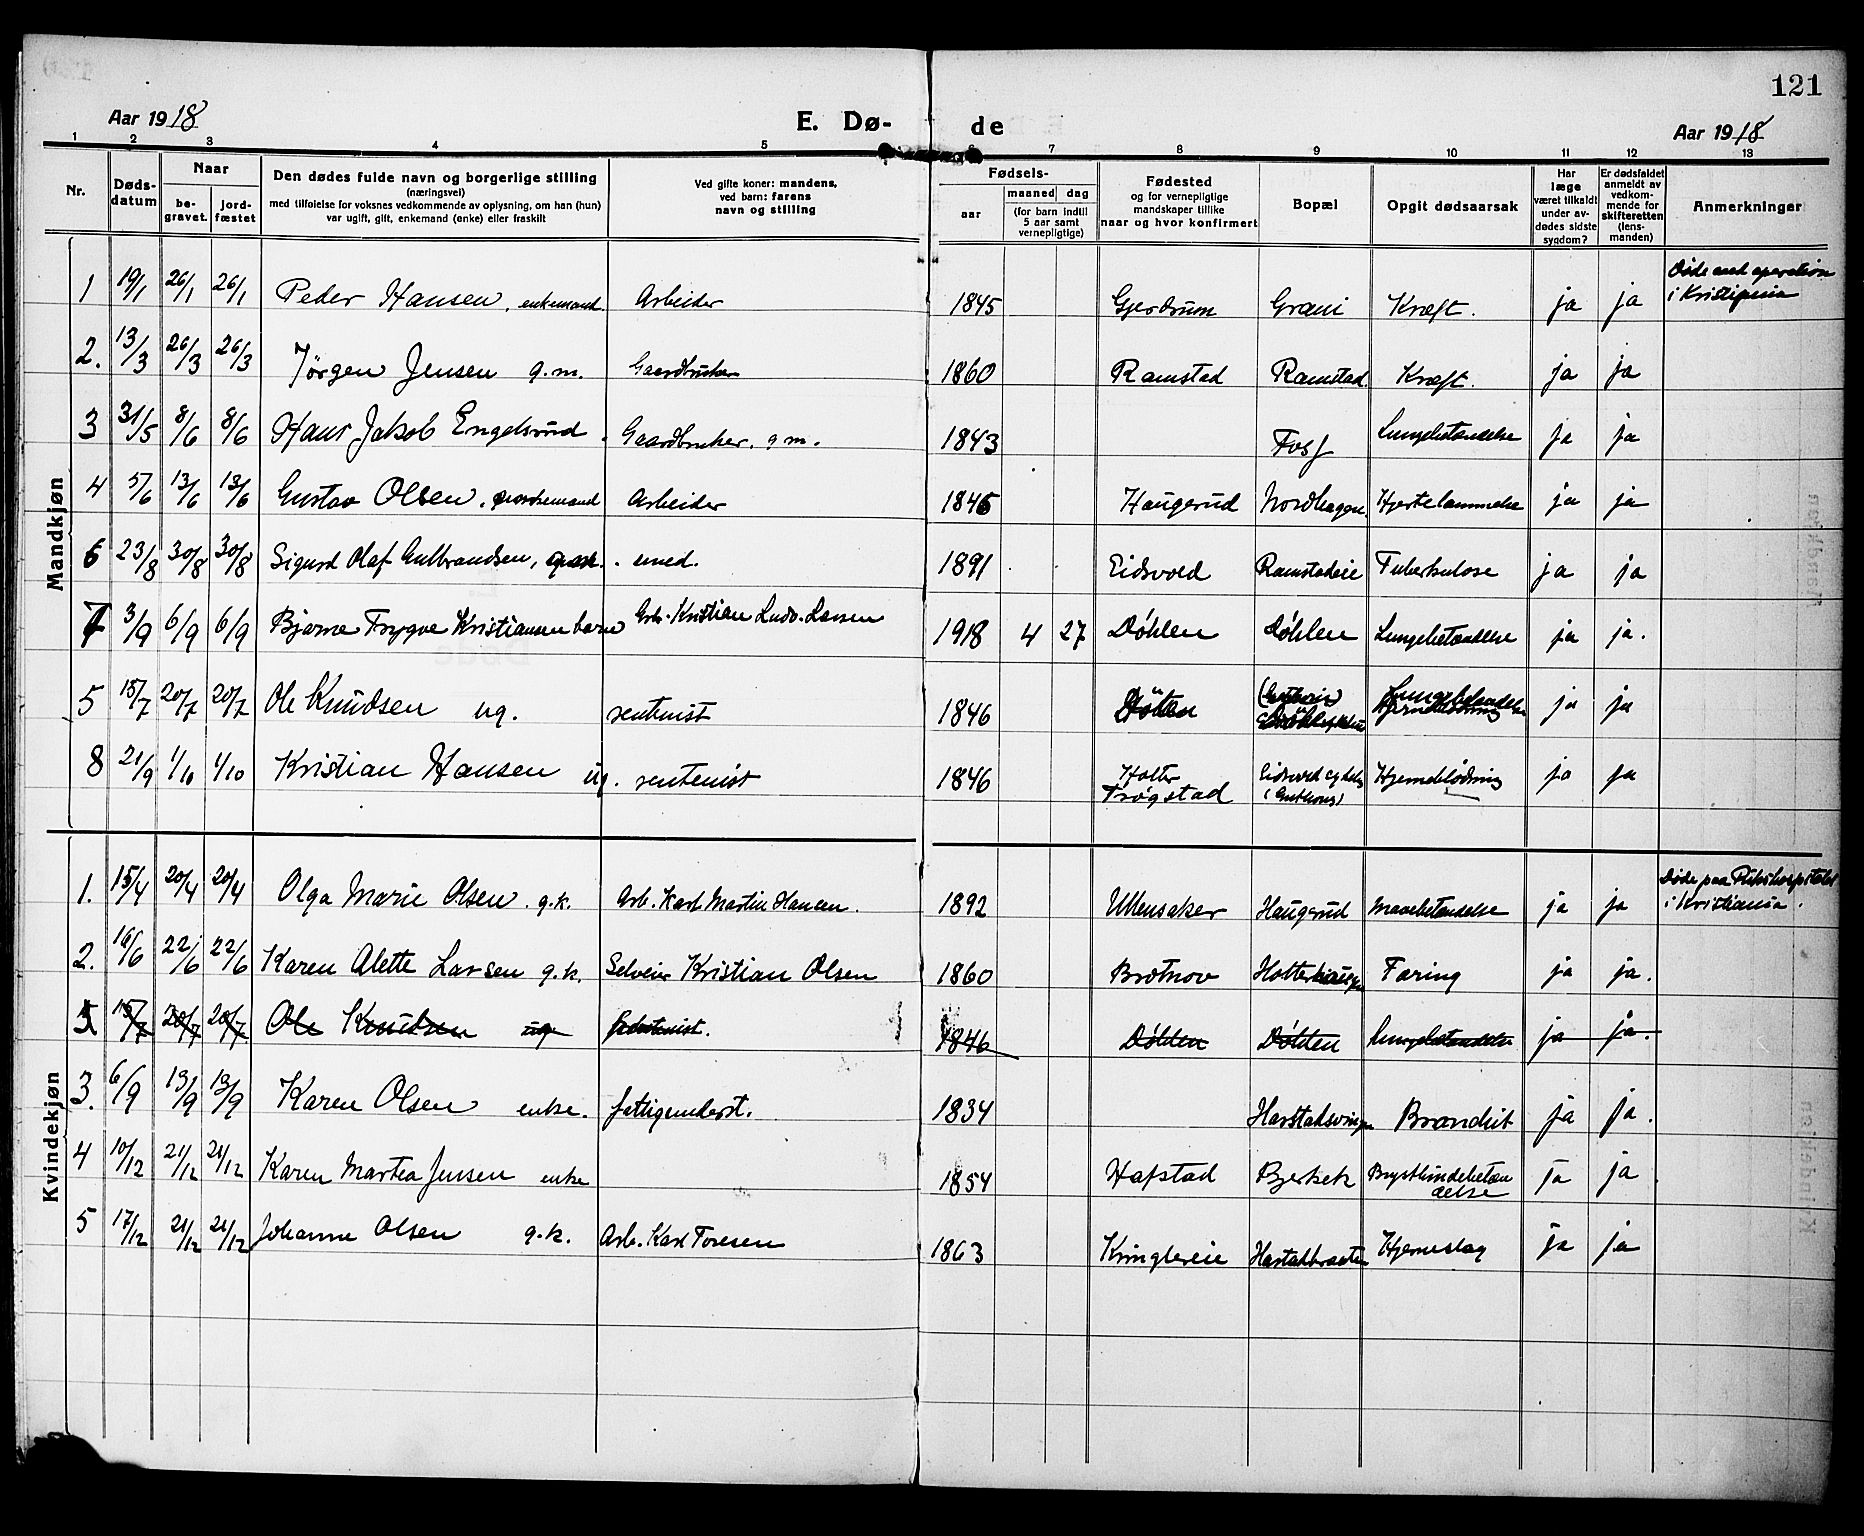 121
Aar 1918 E. Dø- de Aar 1918
1 2 3 4 5 6 7 8 9 10 11 12 13
Nr.
Døds-
datum
Naar
be-
gravet.
jord-
fæstet
Den dødes fulde navn og borgerlige stilling
(næringsvei)
med tilføielse for voksnes vedkommende av oplysning, om han (hun)
var ugift, gift, enkemand (enke) eller fraskilt
Ved gifte koner: mandens,
ved barn: farens
navn og stilling
Fødsels-
aar
maaned dag
(for barn indtil
5 aar samt
vernepligtige)
Fødested
og for vernepligtige
mandskaper tillike
naar og hvor konfirmert
Bopæl
Opgit dødsaarsak
Har
læge
været tilkaldt
under av-
dødes sidste
sygdom?
Er dødsfaldet
anmeldt av
vedkom-
mende for
skifteretten
(lens-
manden)
Anmerkninger
Mandkjøn
1 19/1 26/1 26/1 Peder Hansen, enkemand. Arbeider 1845 Gjerdrum Grani Kræft. ja ja Døde ved operation
i Kristiania
2. 13/3 26/3 26/3 Jørgen Jensen g.m. Gaardbruker 1860 Ramstad Ramstad Kræft. ja ja
3 31/5 8/6 8/6 Hans Jakob Engelsrud. Gaardbruker. g m. 1843 Fosf Lungebetændelse ja ja
4 5/6 13/6 13/6 Gustav Olsen, Arbeider 1846 Haugerud Nordhagen Hjertelammelse ja ja
6 23/8 30/8 30/8 Sigurd Olaf Gulbrandsen, smed. 1891 Eidsvold Ramstadeie Tuberkulose ja ja
7 3/9 6/9 6/9 Bjarne Trygve Kristiansen barn Arb. Kristian Ludv. Larsen 1918 4 27 Døhlen Døhlen Lungebetændelse ja ja.
5 15/7 20/7 20/7 Ole Knudsen ug. rentenist 1846 Døhlen Lungebetændelse ja ja
8 21/9 1/10 1/10 Kristian Hansen ug. rentenist 1846 Holter
Trøgstad Hjerneblødning ja ja
Kvindekjøn
1. 15/4 20/4 20/4 Olga Marie Olsen. g.k. Arb. Karl Martin Hansen. 1892 Ullensaker Haugerud Mavebetændelse ja ja Døde paa Rikshospitalet
i Kristiania.
2. 16/6 22/6 22/6 Karen Alette Larsen g.k. Selveier Kristian Olsen 1860 Brotnov Holterhaugen Tæring ja ja.
3 15/7 20/7 20/7 Ole Knudsen ug rentenist. 1846 Døhlen Døhlen Lungebetændelse ja ja.
3. 6/9 13/9 13/9 Karen Olsen enke. fattigunderst. 1834 Harstadsvingen Brandsit ja ja.
4 10/12 21/12 21/12 Karen Martea Jensen enke 1854 Hafstad Bjerkek Brysthindebetæn
delse ja ja
5 17/12 21/12 21/12 Johanne Olsen g.k. Arb. Karl Toresen 1863 Kringlereie Harstadbraaten Hjerneslag ja ja